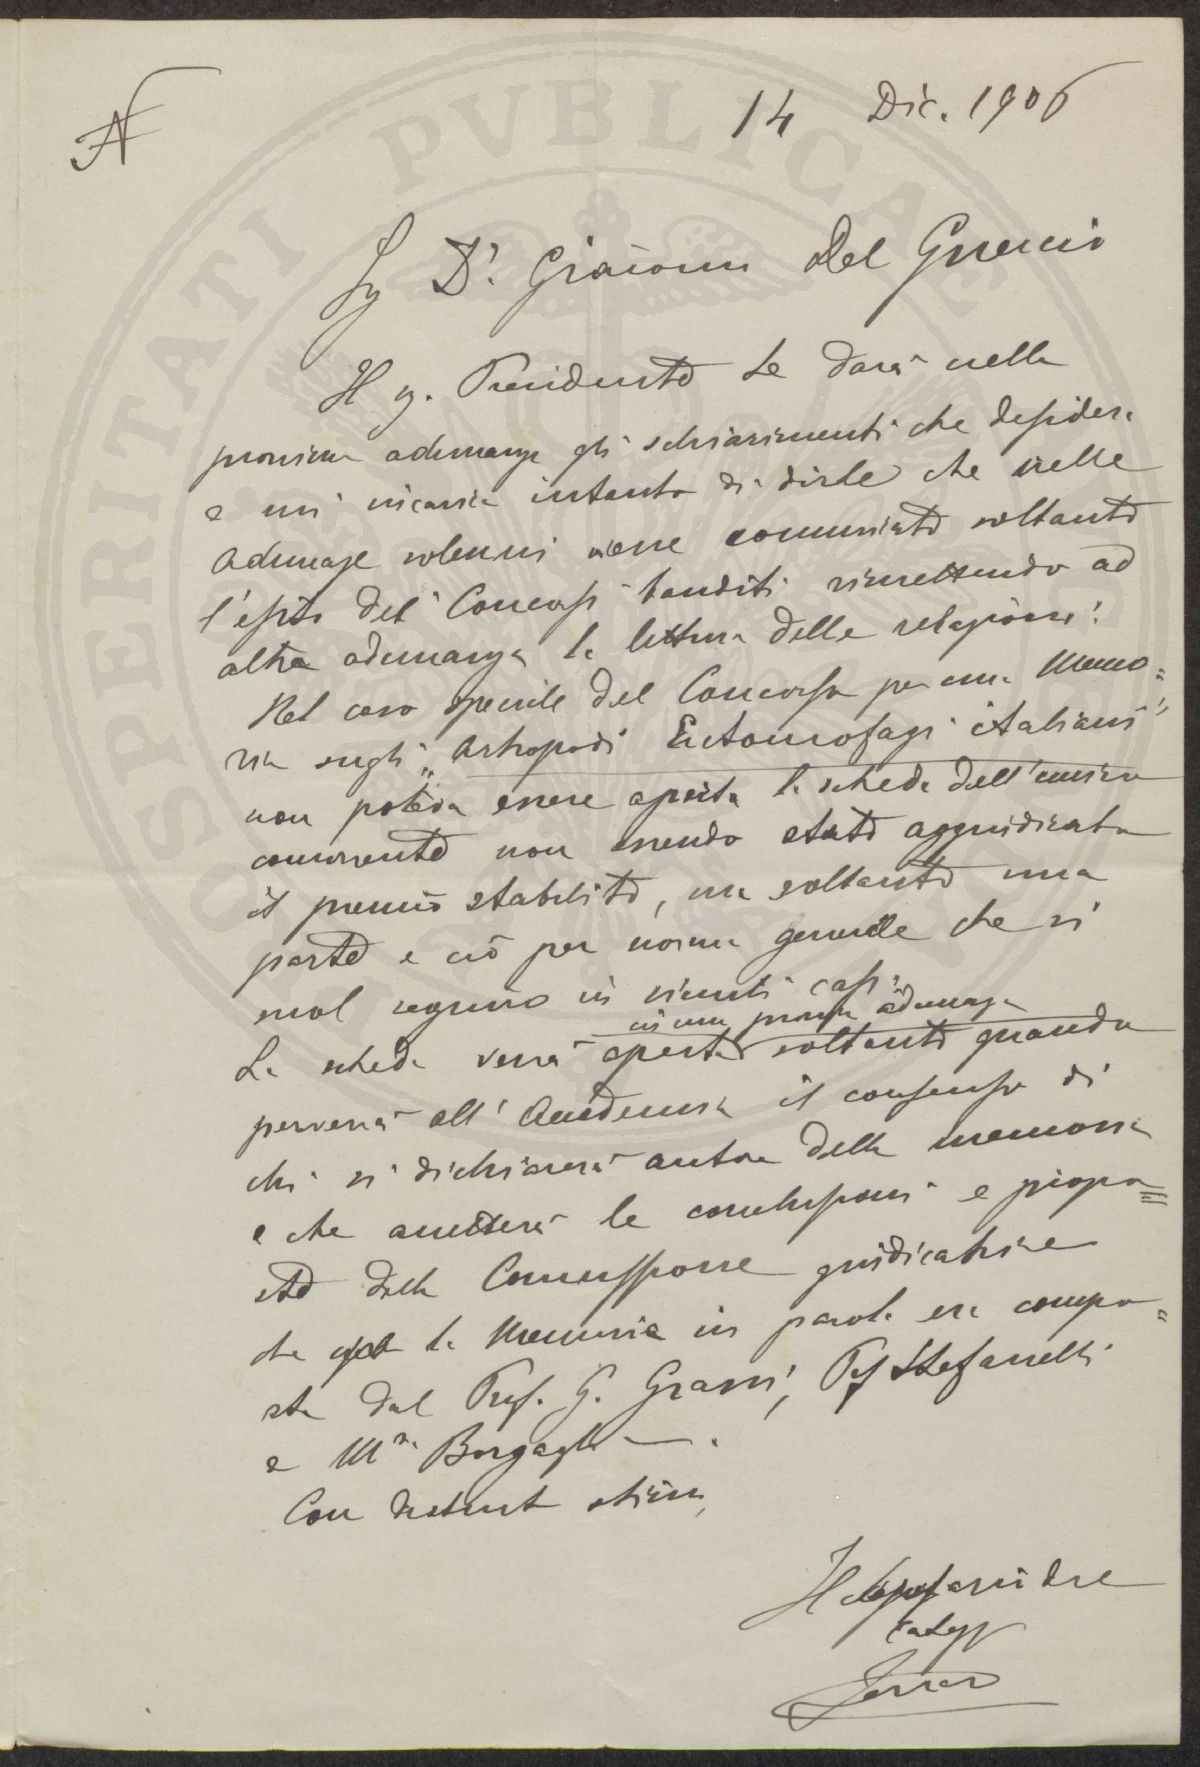 14 Dic. 1906
Sg D.r Giacomo Del Guercio
Il sg. Presidente Le darà nella
prossima adunanza gli schiarimenti che desidera
e mi incarica intanto di dirle che nelle
adunanze solenni viene comunicato soltanto
l'esito dei Concorsi banditi rimettendo ad
altra adunanza la lettura delle relazioni.
Nel caso speciale del Concorso per una Memo=
ria sugli "Artropodi Entomofagi italiani"
non poteva essere aperta la scheda dell'unico
concorrente non essendo stato aggiudicato
il premio stabilito, ma soltanto una
parte e ciò per norma generale che si
suol seguire in simili casi.
in una prossima adunanza
La scheda verrà aperta soltanto quando
perverrà all'Accademia il consenso di
chi si dichiarerà autore della memoria
e che accetterà le conclusioni e propo=
ste della Commissione giudicatrice
che per la Memoria in parola era compo=
sta dal Prof. G. Grassi, Pof Stefanelli
e M.se Bargagli.
Con distinta stima,
Il